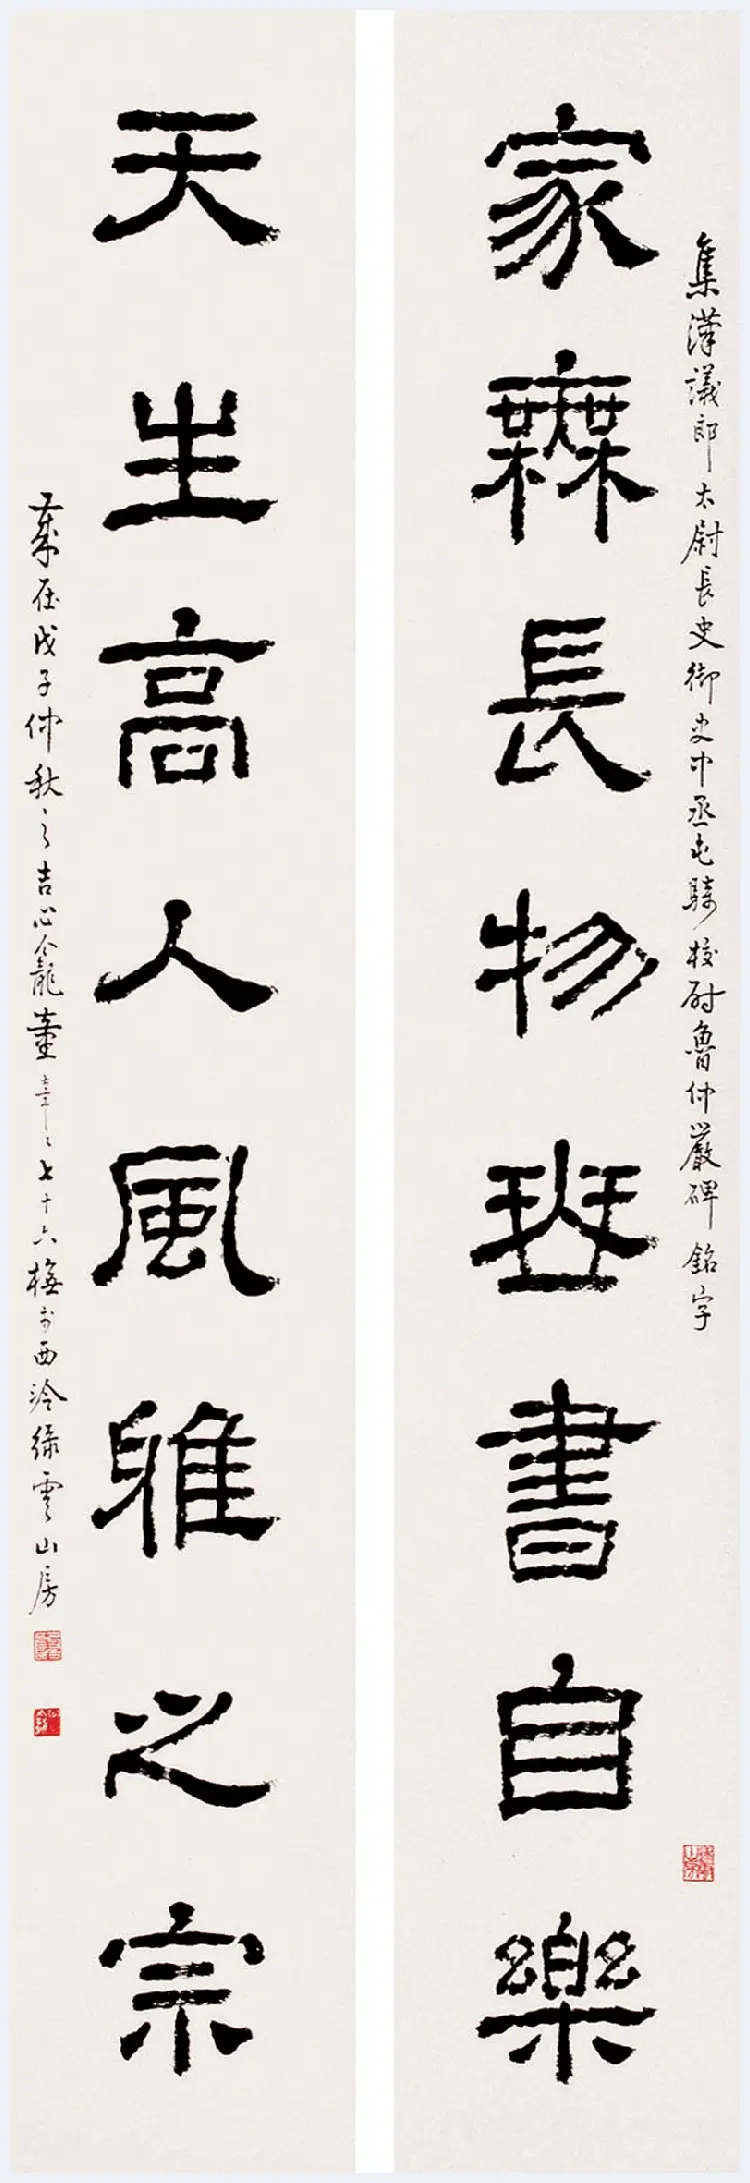 集漢議郎太尉長史御史中丞屯騎校尉魯仲嚴碑銘字
家無長物班書自樂
天生高人風雅之宗
歲在戊子仲秋之吉心龕童晏七十六梅書西泠綠雲山房